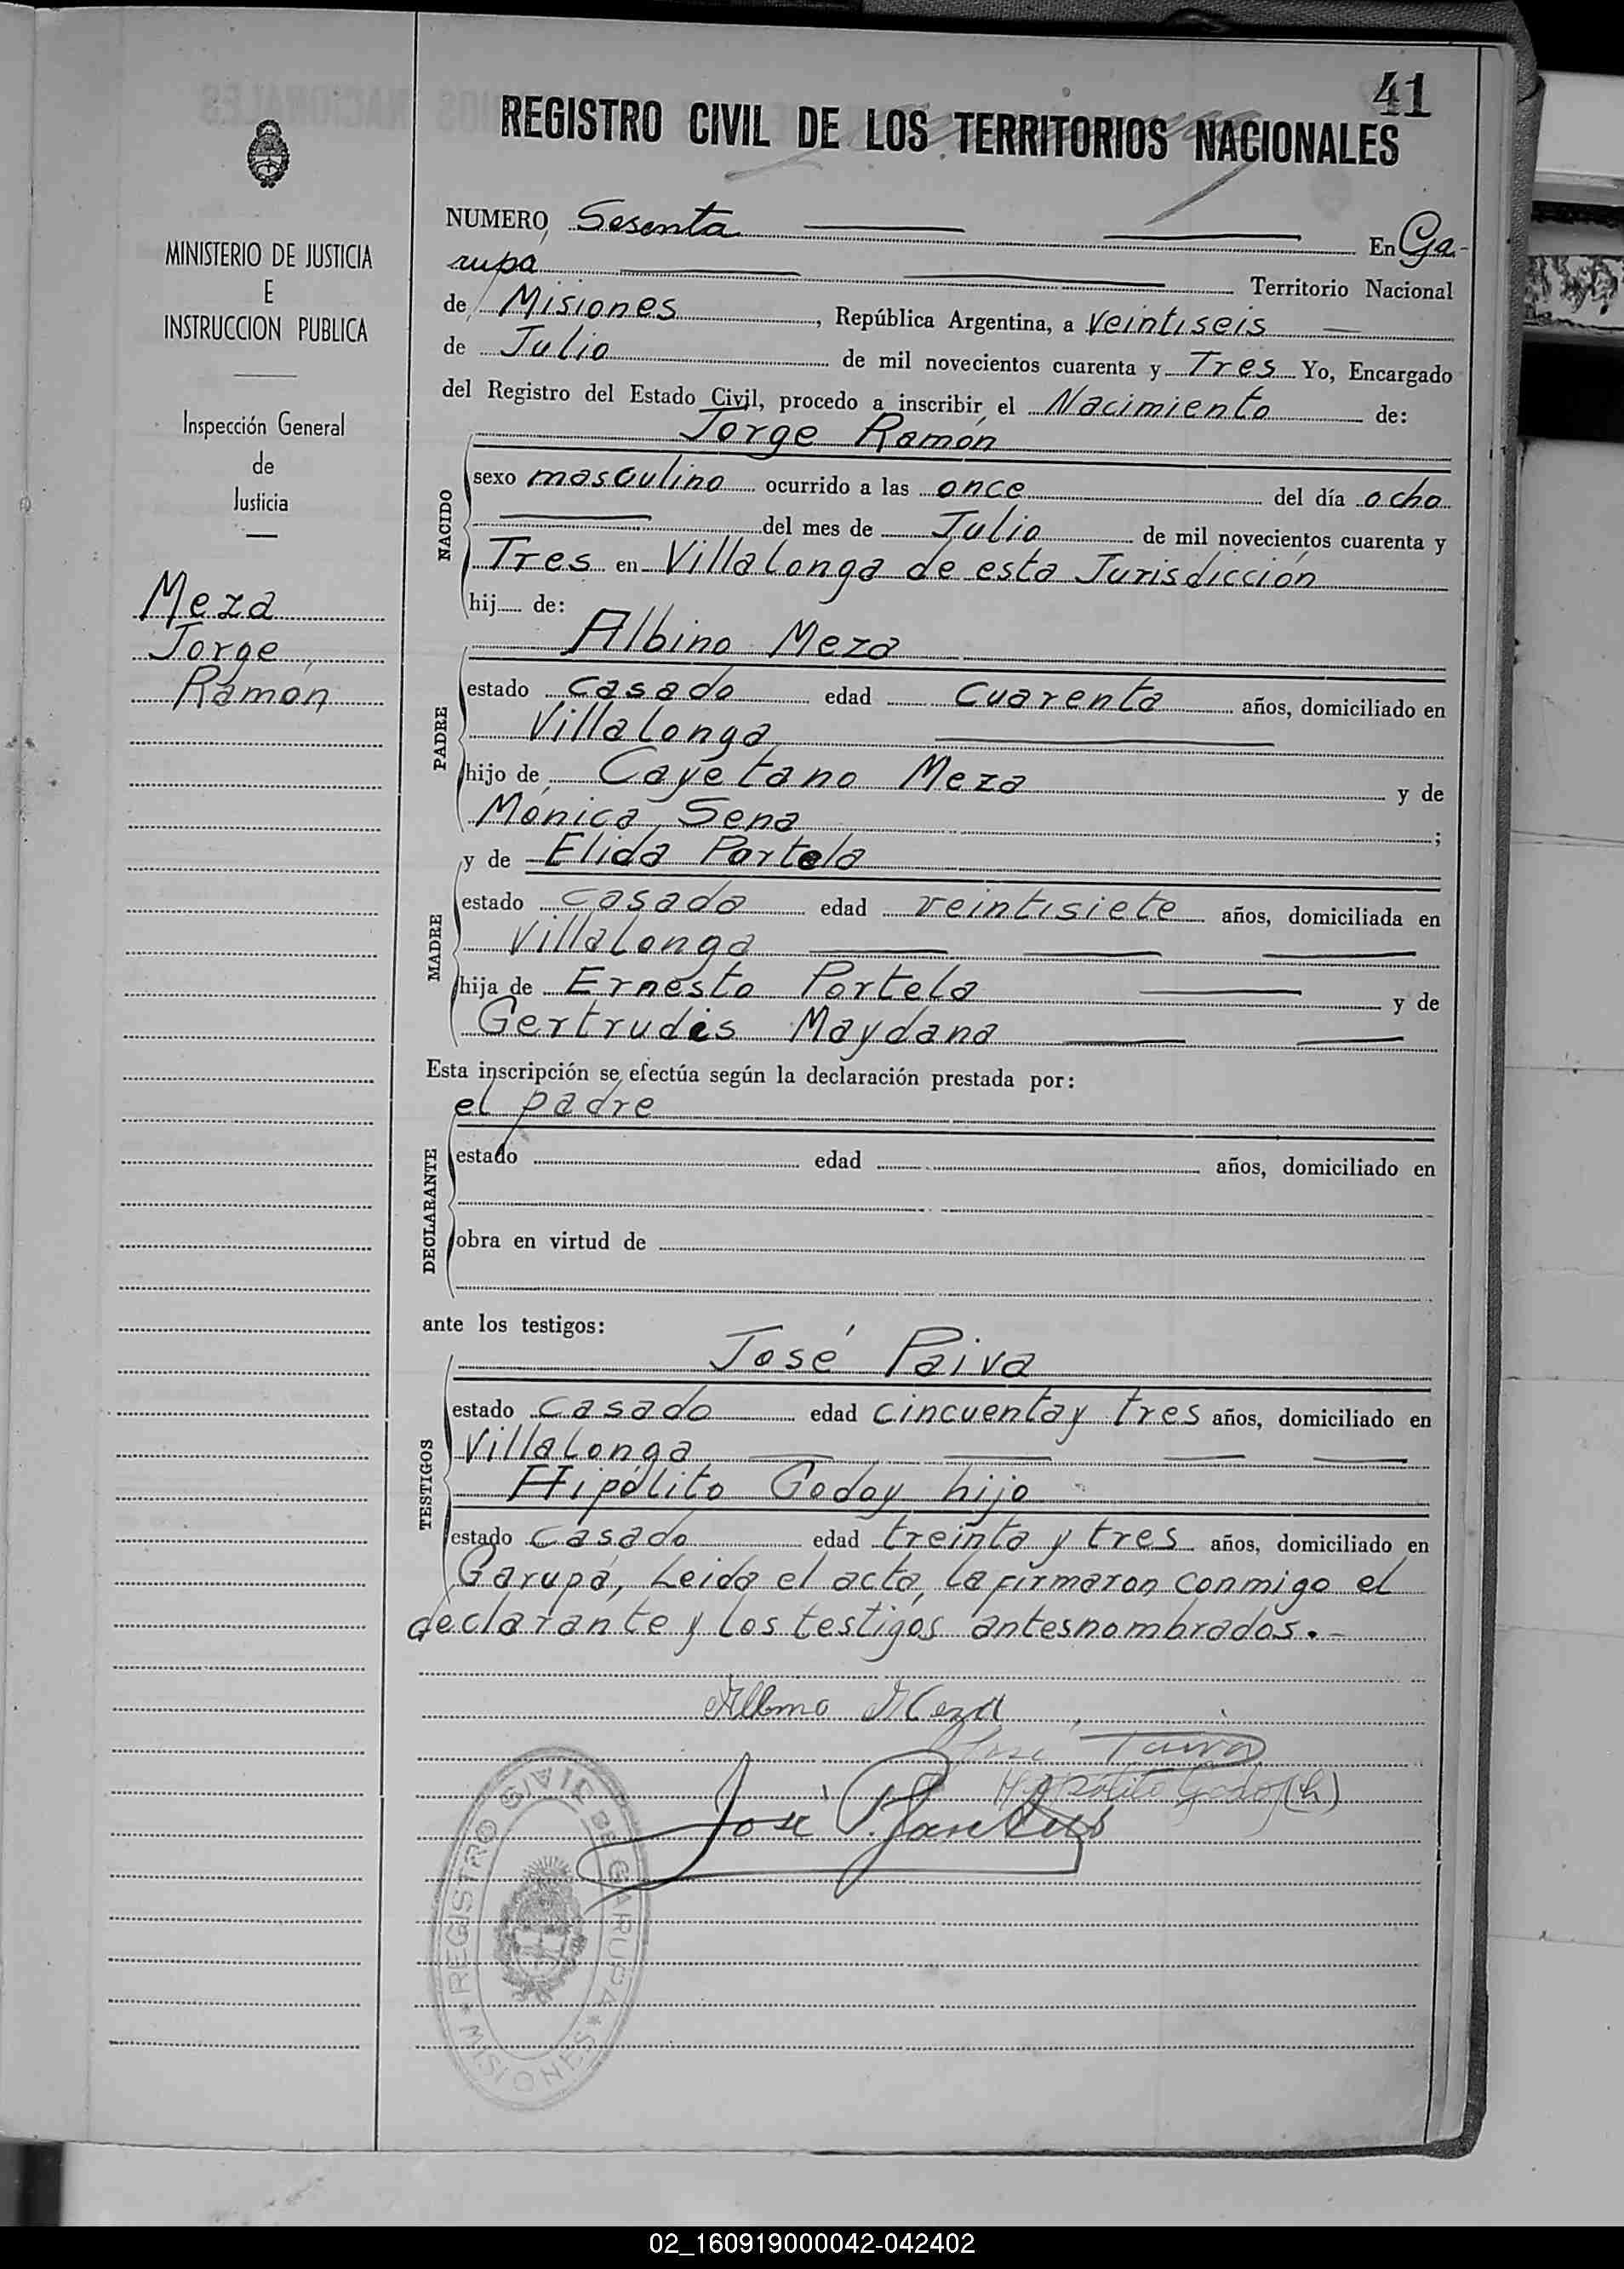 41
REGISTRO CIVIL DE LOS TERRITORIOS NACIONALES
MINISTERIO DE JUSTICIA
E
INSTRUCCION PUBLICA
Inspección General
de
Justicia
Meza
Jorge
Ramón
NUMERO Sesenta En Ga-
rupa Territorio Nacional
de Misiones, República Argentina, a Veintiseis
de Julio de mil novecientos cuarenta y Tres Yo, Encargado
del Registro del Estado Civil, procedo a inscribir el Nacimiento de:
Jorge Ramón
NACIDO
sexo masculino ocurrido a las once del día ocho
del mes de Julio de mil novecientos cuarenta y
Tres en Villalonga de esta Jurisdicción
hij de:
Albino Meza
PADRE
estado casado edad cuarenta años, domiciliado en
Villalonga
hijo de Cayetano Meza y de
Mónica Sena ;
y de Elida Portela
MADRE
estado casada edad veintisiete años, domiciliada en
Villalonga
hija de Ernesto Portela y de
Gertrudis Maydana
Esta inscripción se efectúa según la declaración prestada por:
el padre
DECLARANTE
estado edad años, domiciliado en
obra en virtud de
ante los testigos:
José Paiva
TESTIGOS
estado casado edad cincuenta y tres años, domiciliado en
Villalonga
Hipólito Godoy hijo
estado casado edad treinta y tres años, domiciliado en
Garupá, Leida el acta, la firmaron conmigo el
declarante y los testigos antesnombrados.-
Albino Meza
Jose Paiva
Hipolito Godoy (h)
José P.
REGISTRO CIVIL DE GARUPA * MISIONES *
02_160919000042-042402